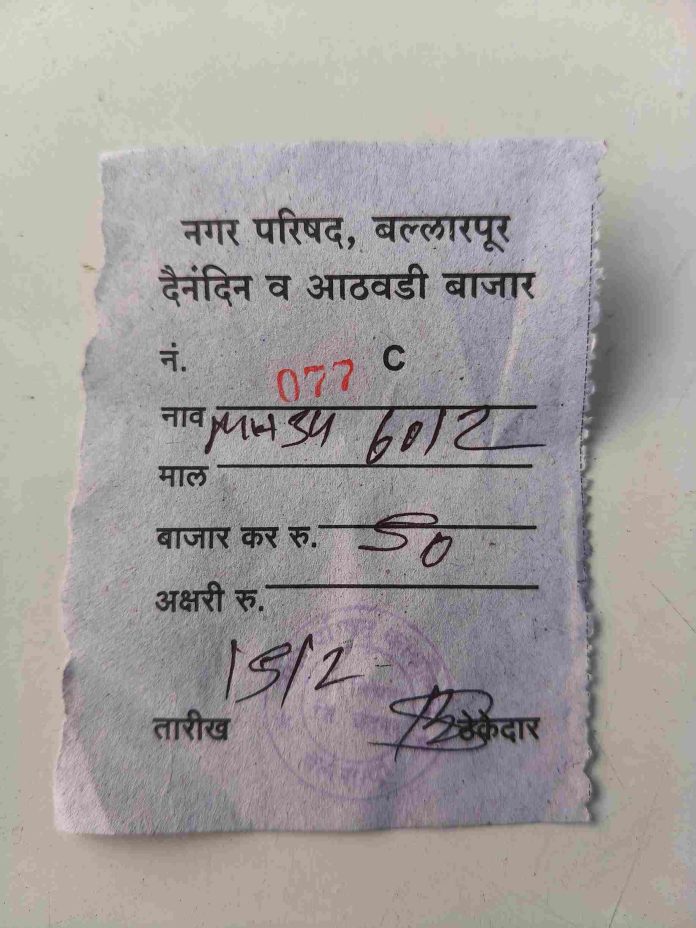 नगर परिषद, बल्लारपूर
दैनंदिन व आठवडी बाजार
नं. 077 C
नाव MH34 6012
माल
बाजार कर रु. 50
अक्षरी रु.
15/2
तारीख ठेकेदार